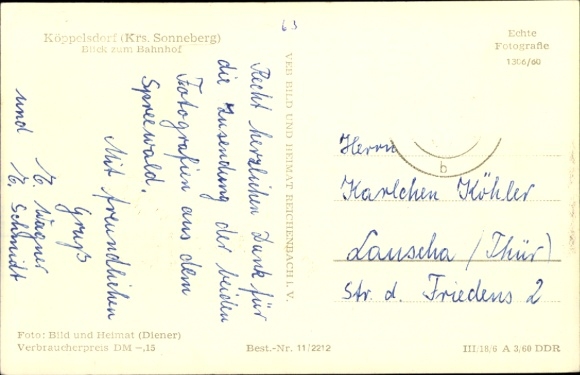 63
Köppelsdorf (Krs. Sonneberg)
Blick zum Bahnhof
Echte
Fotografie
1306/60
Recht herzlichen Dank für
die Zusendung der beiden
Fotografien aus dem
Spreewald.
Mit freundlichen
Gruß
E. Wagner
und E. Schmidt
VEB BILD UND HEIMAT REICHENBACH I. V.
b
Herrn
Karlchen Köhler
Lauscha (Thür)
Str. d. Friedens 2
Foto: Bild und Heimat (Diener)
Verbraucherpreis DM -,15
Best.-Nr. 11/2212
III/18/6 A 3/60 DDR